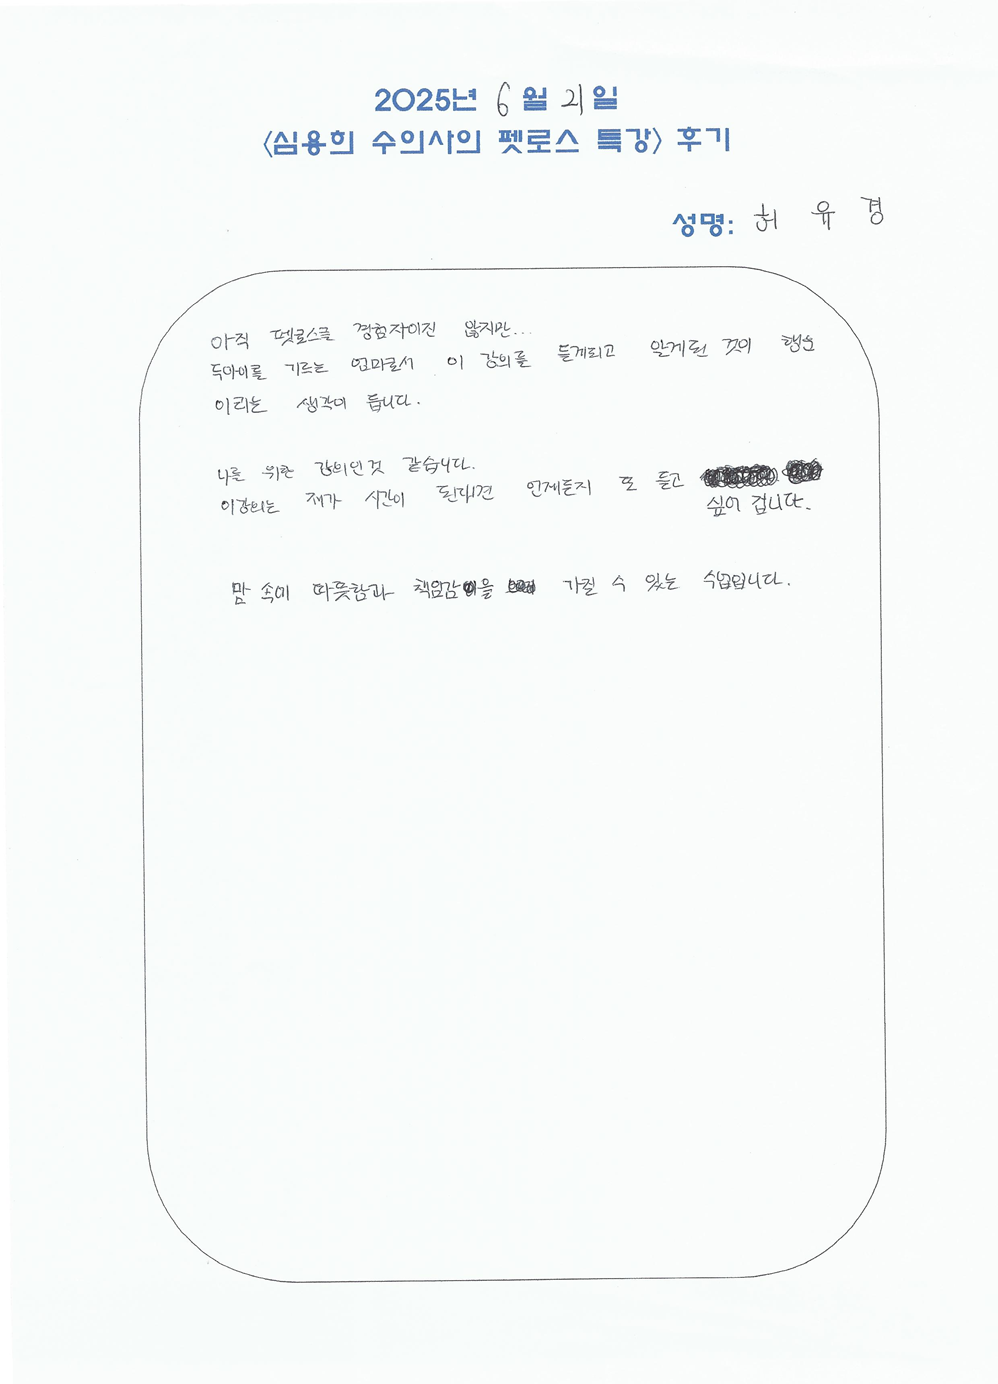 2025년 6월 21일
<심용희 수의사의 펫로스 특강> 후기
성명: 허 유 경
아직 펫로스를 경험자이진 않지만...
두아이를 기르는 엄마로서 이 강의를 듣게되고 알게된 것이 행운
이라는 생각이 듭니다.
나를 위한 강의인것 같습니다.
이강의는 제가 시간이 된다면 언제든지 또 듣고
싶어 집니다.
맘 속에 따뜻함과 책임감을 가질 수 있는 수업입니다.